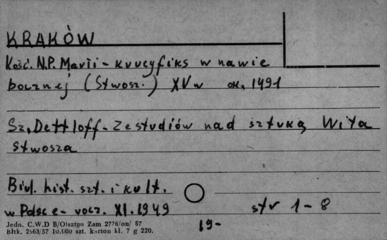 KRAKÓW
Kość. N.P. Marii - krucyfiks w nawie
bocznej (Stwosz.) XV w ok. 1491
Sz. Dettloff - Ze studiów nad sztuką Wita
Stwosza
Biul. hist. szt. i kult.
w Polsce - rocz. XI. 1949 str 1-8
19-
Jedn. C.W.D B/Olsztpo Zam 2776/on/ 57
Bltk. 2563/57 10.000 szt. karton kl. 7 g 220.